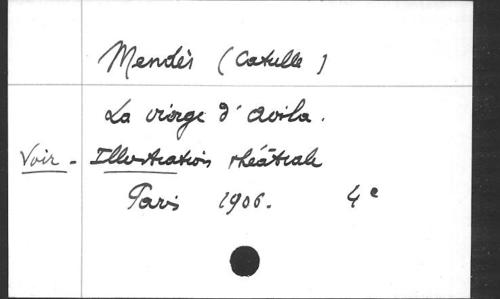 Mendès (Catulle)
La vierge d'Avila.
Voir - Illustration théâtrale
Paris 1906. 4e